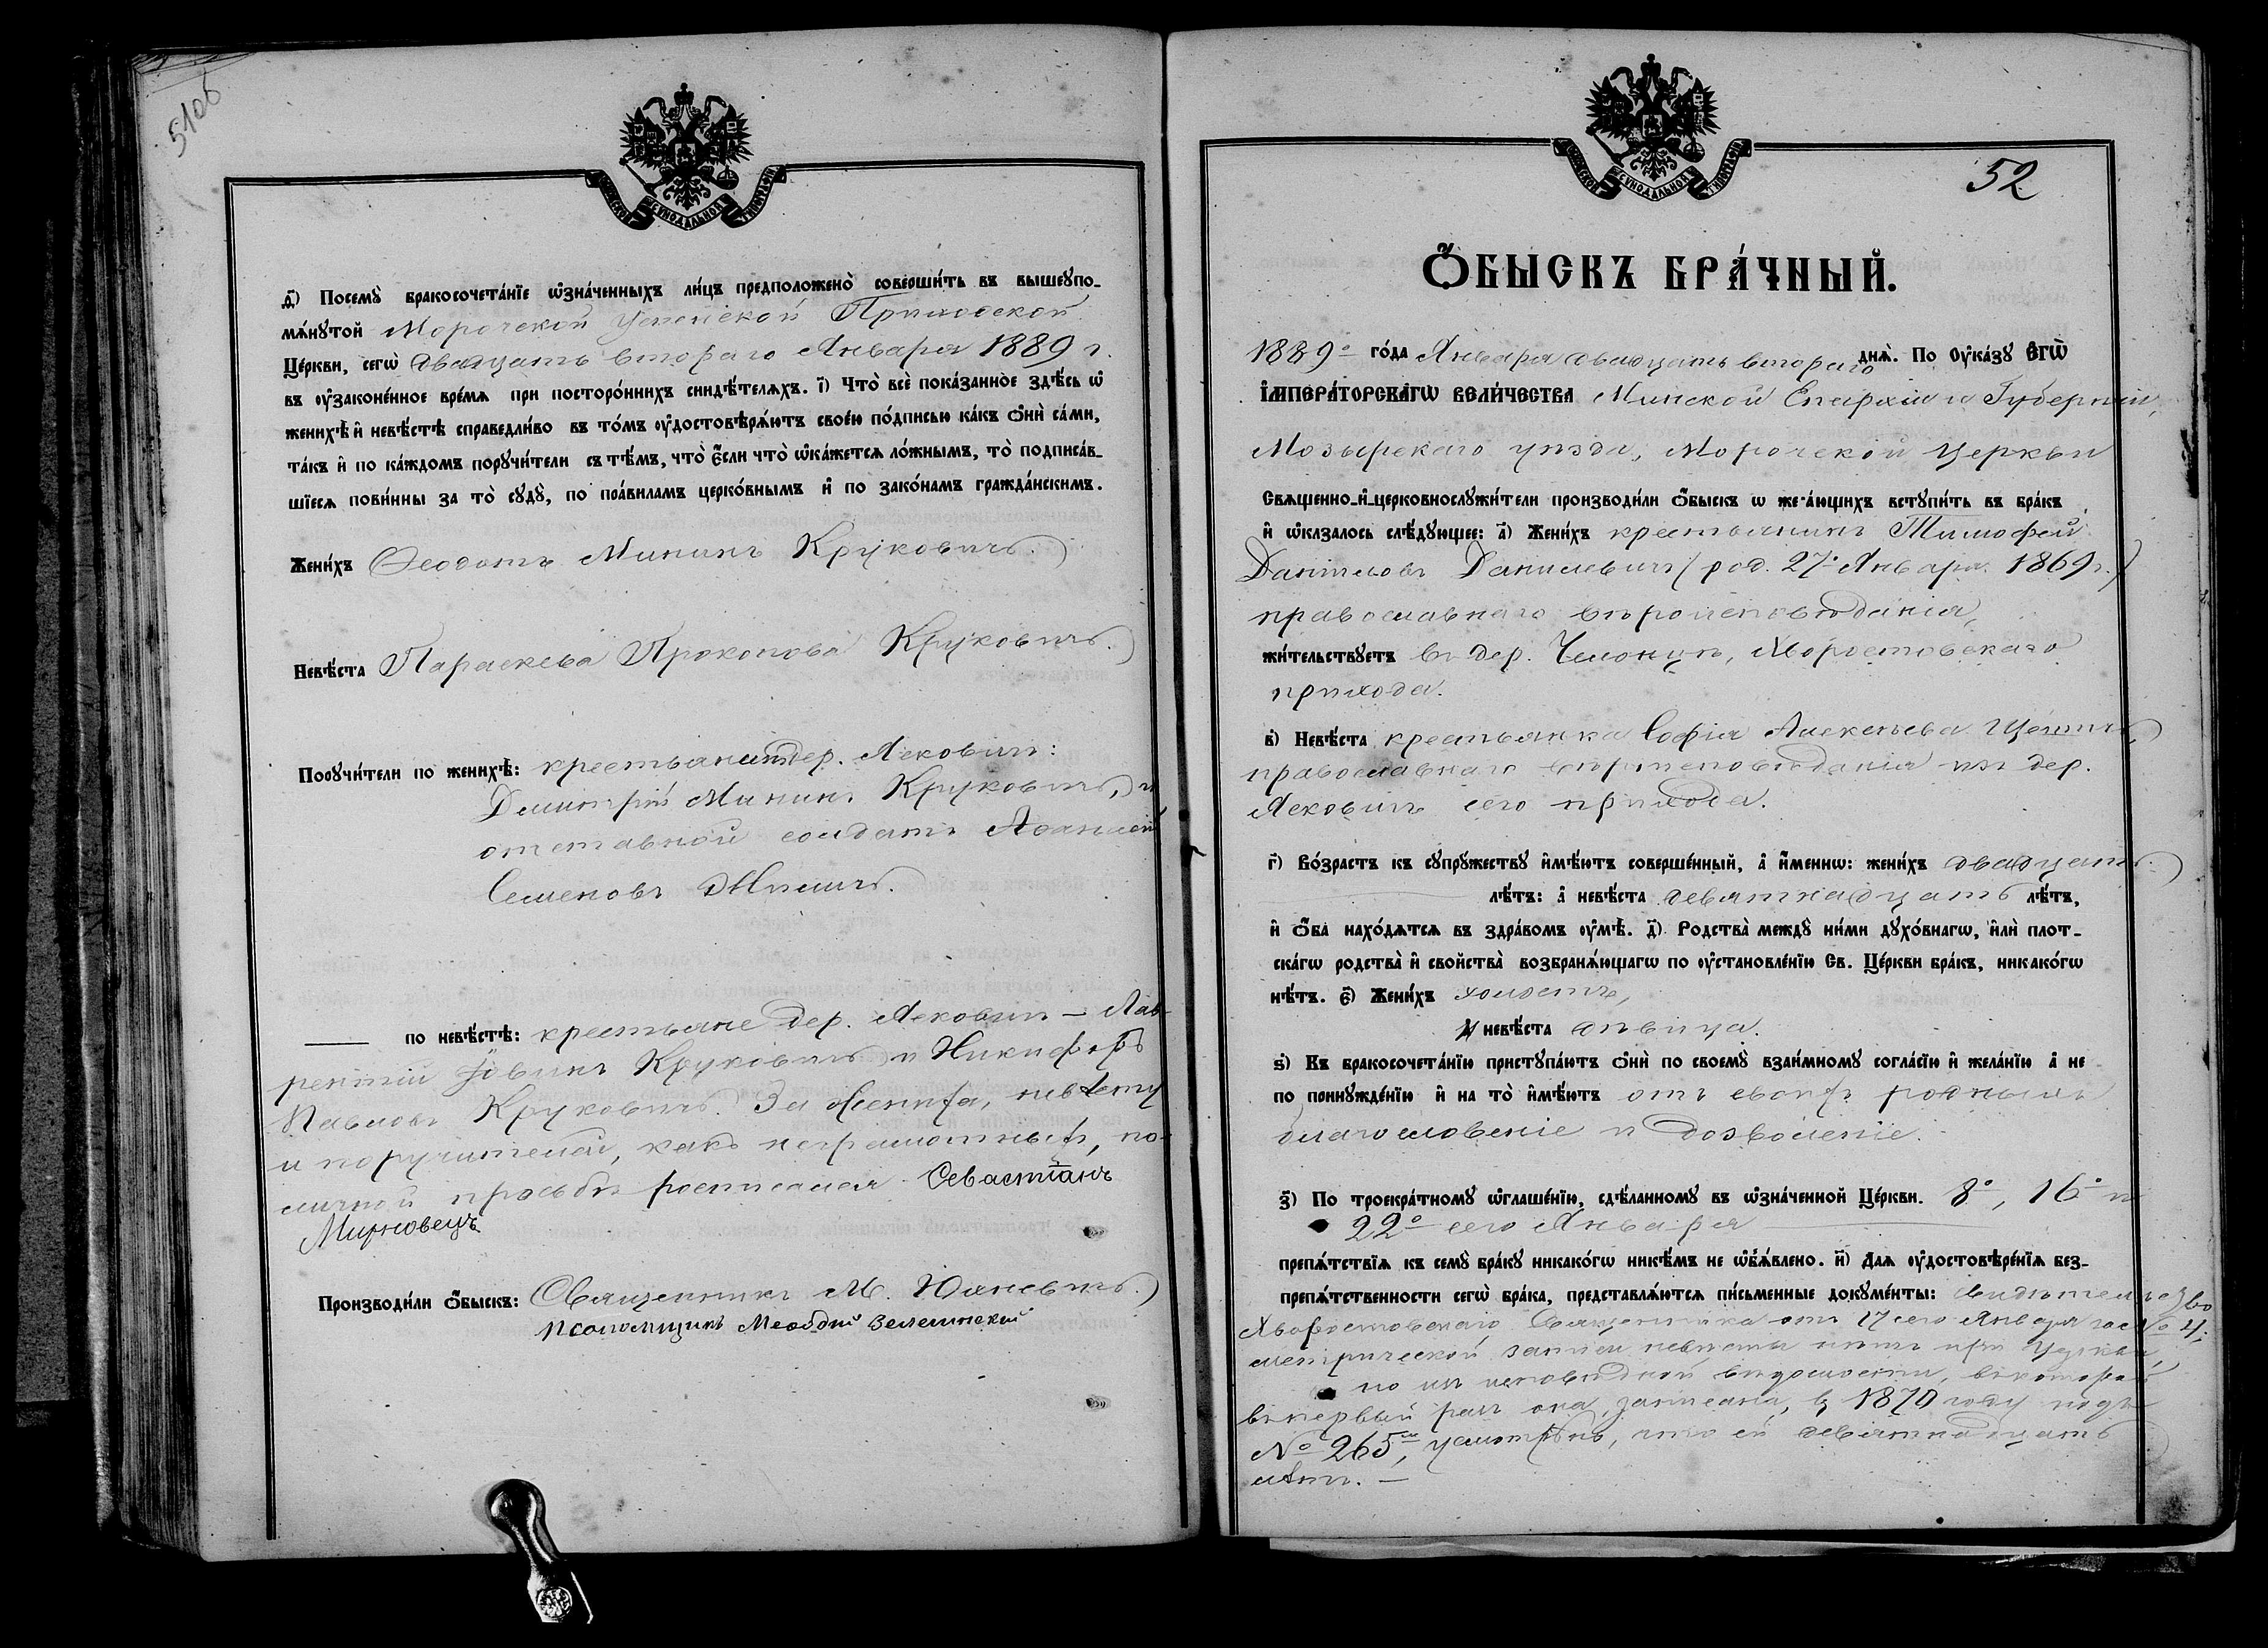 51об
д҃) Посемꙋ̀ бракосочета́нїе ѡ҆зна́ченныхъ ли́цъ предположено̀ совершѝть въ вышеꙋпо-
мѧ́нꙋтой Морочской Успенской Приходской
Це́ркви, сегѡ̀ двадцать втораго Января 1889 г.
въ ᲂу҆законе́нное вре́мѧ при посторо́ннихъ свидѣ́телѧхъ. і҃) Что̀ всѐ пока́занное здѣ́сь ѡ҆
женихѣ̀ и҆ невѣ́стѣ справедли́во въ то́мъ ᲂу҆достовѣрѧ́ютъ свое́ю по́дписью ка́къ ѻ҆нѝ са́ми,
та́къ и҆ по ка́ждомъ порꙋчи́тели съ тѣ́мъ, что̀ є҆́сли что̀ ѡ҆ка́жетсѧ ло́жнымъ, то̀ подписа́в-
шїесѧ пови́нны за то̀ сꙋдꙋ̀, по пра́виламъ церко́внымъ и҆ по зако́намъ гражда́нскимъ.
Жени́хъ Ѳеодотъ Мининъ Круковичъ.
Невѣ́ста Параскева Прокопова Круковичъ.
Порꙋчи́тели по женихѣ̀: крестьянинъ дер. Лековичъ:
Димитрій Мининъ Круковичъ, и
отставной солдатъ Аѳанасій
Семеновъ
по невѣ́стѣ: крестьяне дер. Лековичъ – Лав-
рентій Круковичъ и Никифоръ
Павловъ Круковичъ. За жениха, невѣсту
и поручителей, какъ неграмотныхъ, по
личной просьбѣ росписался Севастіанъ
Мирновецъ
Производи́ли ѻ҆́быскъ: Священникъ М. Юхневичъ.
Псаломщикъ Меѳодій Зелелинский
52
Ѻ҆́БЫСКЪ БРА́ЧНЫЙ.
1889º го́да Января двадцать втораго днѧ̀. По ᲂу҆ка́зꙋ Є҆ГѠ̀
І҆МПЕРА́ТОРСКАГѠ ВЕЛИ́ЧЕСТВА Минской Епархіи и Губерніи,
Мозырскаго уѣзда, Морочской Церкви
Свѧщенно-и҆-церковнослꙋжи́тели производи́ли ѻ҆́быскъ ѡ же а́ющихъ встꙋпи́ть въ бра́къ
и҆ ѡ҆казалось слѣ́дꙋющее: а҃) Жени́хъ крестьянинъ Тимофей
Даніиловъ Данилевичъ (род. 27º Января 1869 г.)
православнаго вѣроисповѣданія,
жи́тельствꙋетъ въ дер. Челонцѣ, Хворостовскаго
прихода.
в҃) Невѣ́ста крестьянка Софія Алексѣева
православнаго вѣроисповѣданія изъ дер.
Лековичъ сего прихода.
г҃) Во́зрастъ къ сꙋпрꙋжествꙋ и҆мѣ́ютъ соверше́нный, а҆ и҆́меннѡ: жени́хъ двадцать
лѣ́тъ: а҆ невѣ́ста девятнадцать лѣ́тъ,
и҆ ѻ҆́ба нахо́дѧтсѧ въ здра́вомъ ᲂу҆мѣ̀. д҃) Родства̀ междꙋ̀ ни́ми дꙋхо́внагѡ, и҆лѝ плот-
ска́гѡ родства̀ и҆ свойства̀ возбранѧ́ющагѡ по ᲂу҆становле́нїю Св. Це́ркви бра́къ, никако́гѡ
нѣ́тъ. є҃) Жени́хъ холостъ,
И невѣ́ста дѣвица.
ѕ҃) Къ бракосочета́нїю пристꙋпа́ютъ ѻ҆нѝ по своемꙋ̀ взаи́мномꙋ согла́сїю и҆ жела́нїю а҆ не
по принꙋжде́нїю и҆ на то̀ и҆мѣ́ютъ отъ своихъ родныхъ
благословеніе и дозволеніе.
з҃) По троекра́тномꙋ ѡ҆глаше́нїю, сдѣ́ланномꙋ въ ѡ҆зна́ченной Це́ркви. 8º, 16º и
22º сего Января
препѧ́тствїѧ къ семꙋ̀ бра́кꙋ никако́гѡ никѣ́мъ не ѡ҆б̾ѧ́влено. и҃) Длѧ ᲂу҆достовѣре́нїѧ без-
препѧ́тственности сегѡ̀ бра́ка, представлѧ́ютсѧ пи́сьменные докꙋме́нты: свидѣтельство
Хворостовскаго Священника отъ 17 сего Января за № 4;
метрической записи невѣсты нѣтъ при Церкви,
но изъ исповѣдной вѣдомости, въ которой
въ первый разъ она записана, въ 1870 году подъ
№ 265, усмотрѣно, что ей девятнадцать
лѣтъ. –